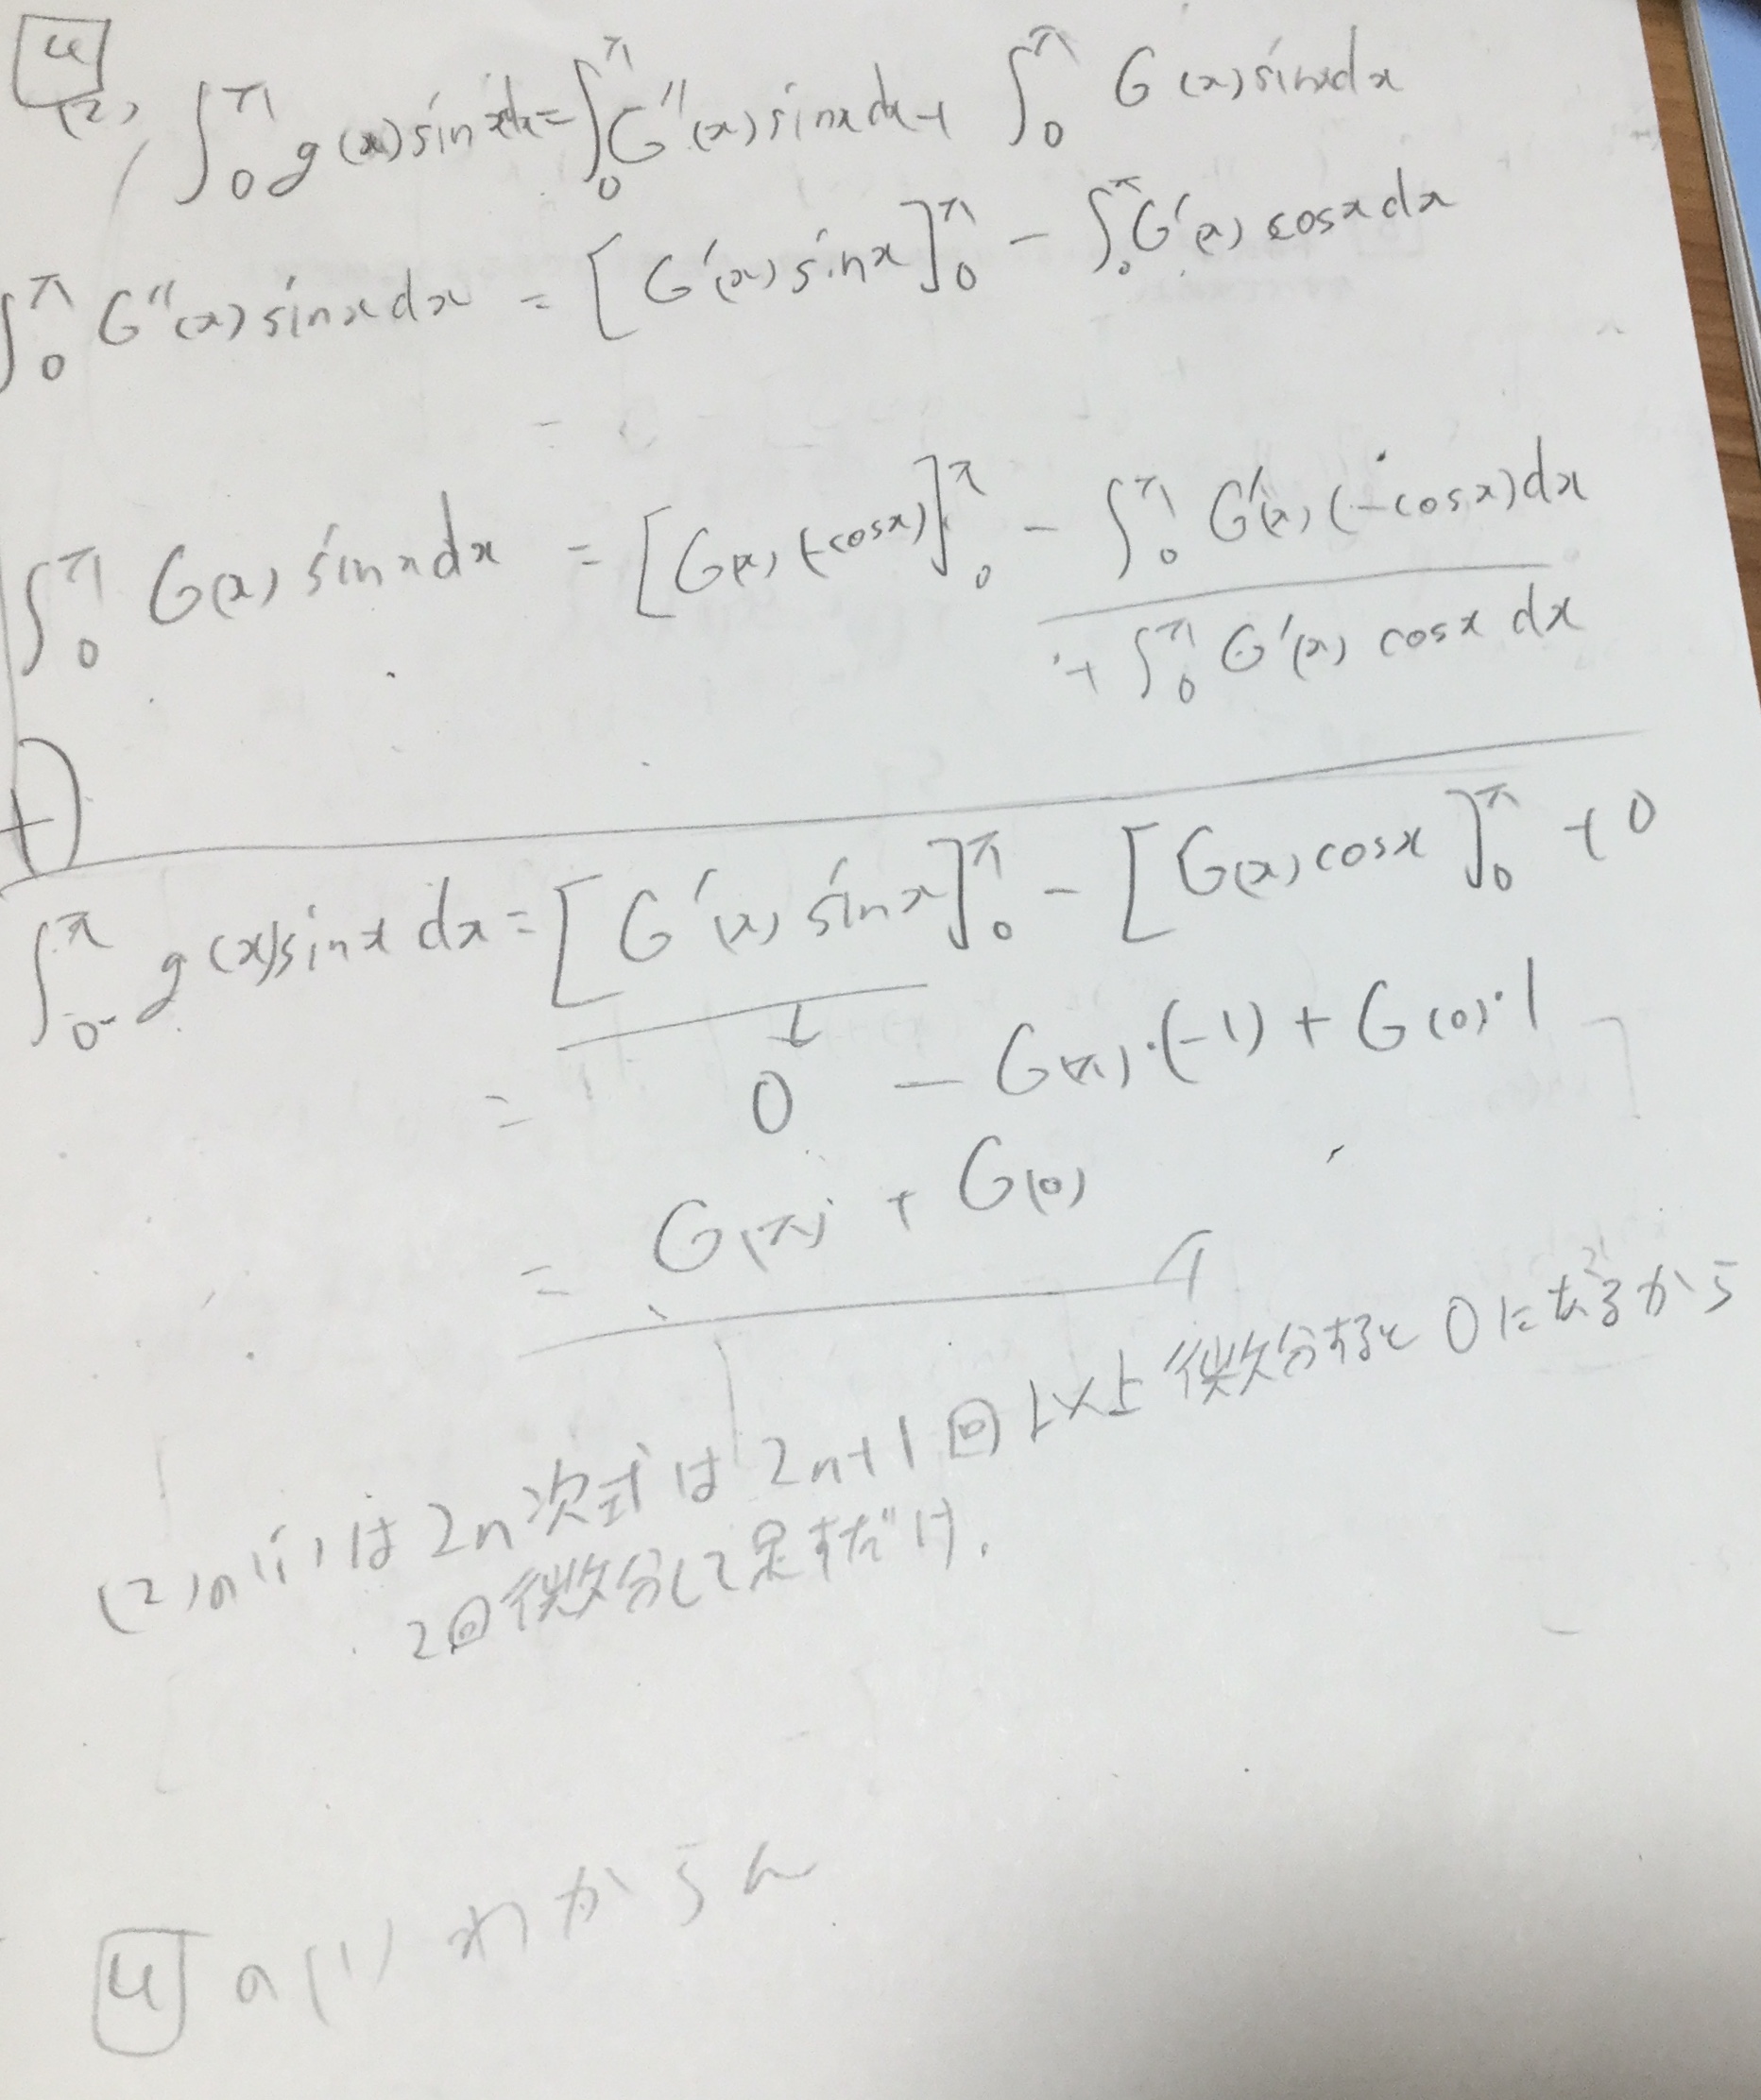 4
(2) ∫₀^π g(x)sinxdx=∫₀^π G''(x)sinxdx+ ∫₀^π G(x)sinxdx
∫₀^π G''(x)sinxdx = [G'(x)sinx]₀^π - ∫₀^π G'(x)cosxdx
∫₀^π G(x)sinxdx = [G(x)(-cosx)]₀^π - ∫₀^π G'(x)(-cosx)dx
+ ∫₀^π G'(x)cosxdx
+)
∫₀^π g(x)sinxdx=[G'(x)sinx]₀^π - [G(x)cosx]₀^π +0
↓
= 0 - G(π)・(-1)+G(0)・1
= G(π)+G(0)
(2)の(i)は2n次式は2n+1回以上微分すると0になるから
2回微分して足すだけ.
4の(1)わからん